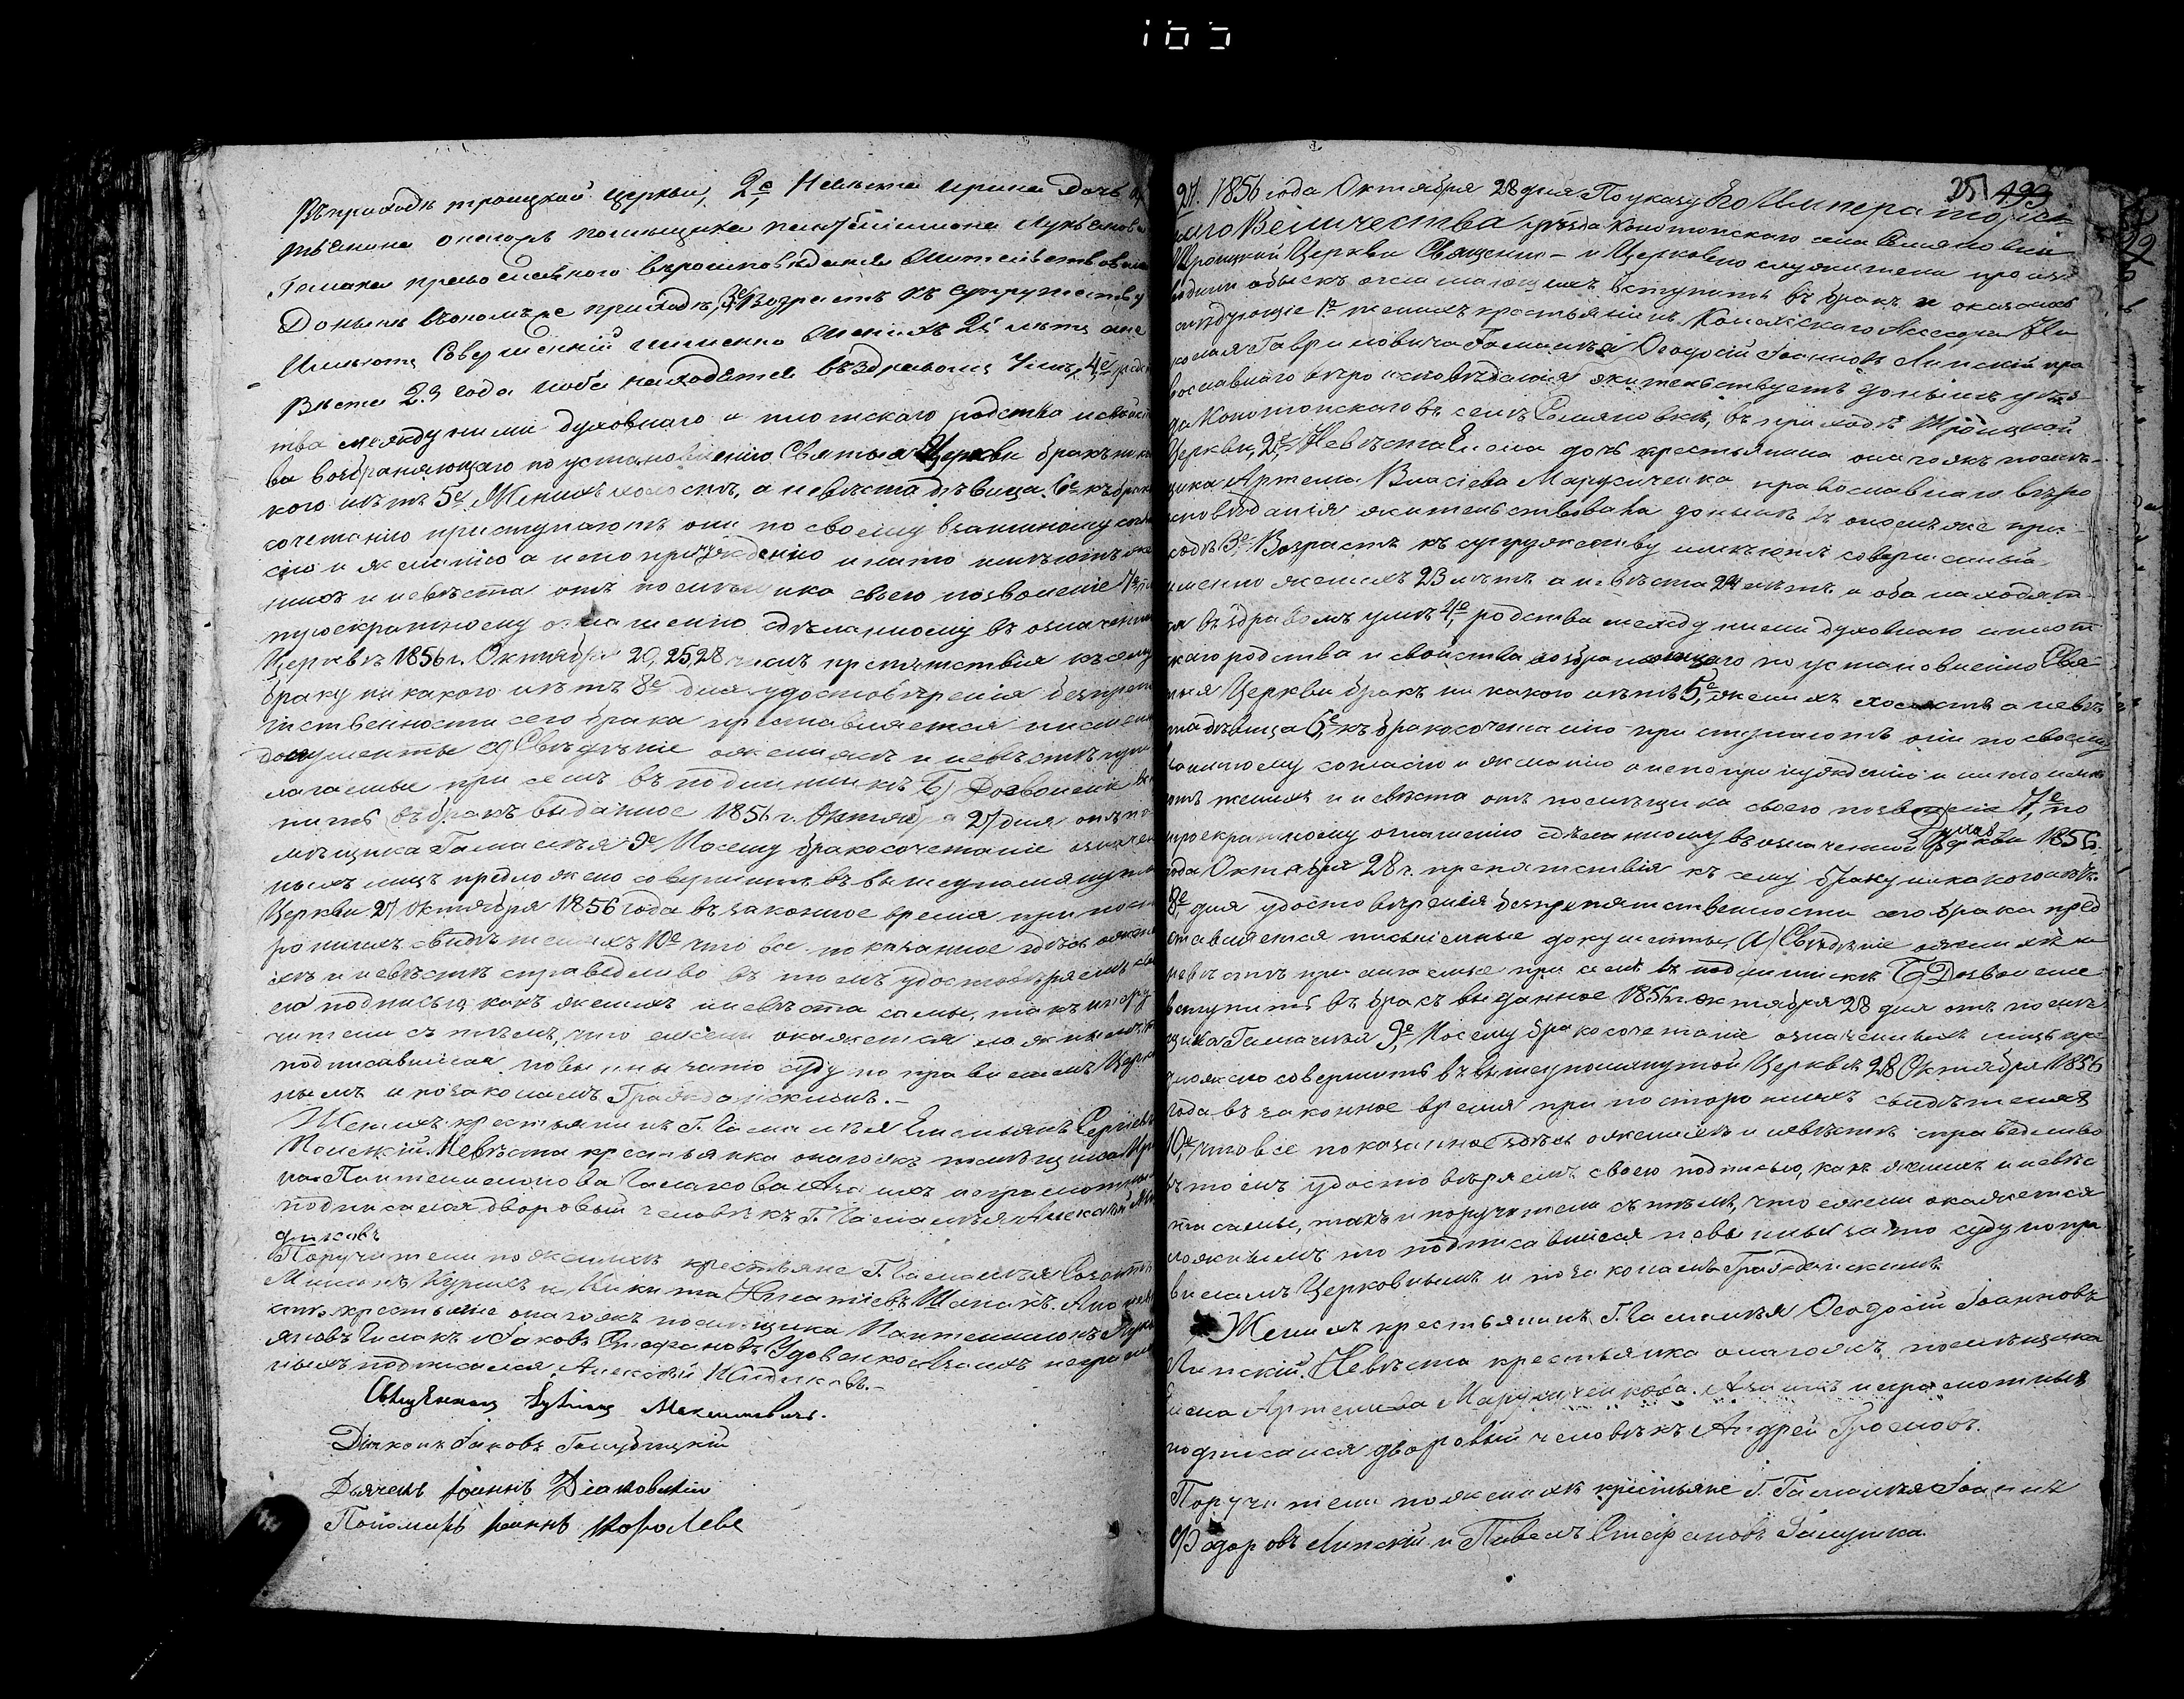 165
въ приходѣ троицкой церкви, 2е, Невѣста Ирина дочь кр
стьянина онагожъ помѣщика Пантелимона Лукьянова
Гамака православнаго вѣроисповѣданія жительствовала
Донынѣ въ ономъ же приходѣ, 3е Возрастъ къ супружеству
Имѣютъ Совершенный именно женихъ 25 лѣтъ а не
вѣста 23 года и оба находятся въ здравомъ умѣ, 4е родс
тва между ними духовнаго и плотскаго родства и свойст
ва возбраняющаго по установленію Святыя Церкви бракъ ника
кого нѣтъ 5е Женихъ холостъ, а невѣста дѣвица. 6е къ брако
сочетанію приступаютъ они по своему взаимному согла
сію и желанію а не по принужденію и на то имѣютъ же
нихъ и невѣста отъ помѣщика своего позволеніе 7е, по
троекратному оглашенію сдѣланному въ означенной
Церквѣ 1856 г. Октября 20, 25, 28 числъ препятствія къ сему
браку никакого нѣтъ 8е для удостовѣренія безпрепят
ственности сего брака представляется письмен
документы а) Свѣдѣніе о женихѣ и невѣстѣ при
лагаемые при семъ въ подлинникѣ Б) Дозволеніе всту
пить въ бракъ выданное 1856 г. Октября 27 дня отъ по
мѣщика Гамалѣя 9е Посему бракосочетаніе означен
ныхъ лицъ предложено совершить въ вышеупомянутой
Церкви 27 Октября 1856 года въ законное время при посто
роннихъ свидѣтеляхъ 10е что все показанное здѣсь о жени
хѣ и невѣстѣ справедливо въ томъ удостовѣряемъ сво
ею подписью, какъ женихъ и невѣста самы, такъ и пору
чители съ тѣмъ, что ежели окажется ложнымъ, то
подписавшіяся повинны за то суду по правиламъ Церков
нымъ и по законамъ Гражданскимъ. -
Женихъ крестьянинъ Г. Гамалѣя Емельянъ Сергіевъ
Невѣста крестьянка онагожъ помѣщика Ири
на Пантелимонова Гамакова А за ихъ неграмотныхъ
подписался дворовый человѣкъ Г. Гамалѣя Алексѣй Жи
дковъ
Поручители по женихѣ крестьяне Г. Гамалѣя
и Никита Игнатіевъ А по невѣ
стѣ крестьяне онагожъ помѣщика Пантелимонъ Лукь
яновъ Гамакъ и Іаковъ Стефановъ Удовенко А за ихъ неграмот
ныхъ подписался Алексѣй Жидковъ. -
Священникъ Максимовичъ.
Діяконъ Іаковъ Голубицкій
Дьячекъ Іоаннъ
Пономарь Іоаннъ Королевъ
25 499
24. 1856 года Октября 28 дня По указу Его Императорс
каго Величества уѣзда Конотопскаго села Семяновки
Троицкой Церкви Священно- и Церковно служители произ
водили обыскъ о желающихъ вступить въ бракъ и оказалось
слѣдующіе 1е женихъ крестьянинъ Колежскаго Асесора Ни
колая Гавриловича Гамалѣя Ѳеодосій Іоанновъ Липскій пра
вославнаго вѣроисповѣданія жительствуетъ донынѣ уѣз
да Конотопскаго въ селѣ Семяновкѣ, въ приходѣ Троицкой
Церкви, 2е, Невѣста Елена дочь крестьянина онагожъ помѣ-
щика Артема Власіева Марусиченка православнаго вѣро
исповѣданія жительствовала донынѣ въ ономъ же при-
ходѣ 3е Возрастъ къ супружеству имѣютъ совершенный
именно женихъ 23 лѣтъ а невѣста 24 лѣтъ и оба находят-
ся въ здравомъ умѣ 4е родства между ними духовнаго и плот
скаго родства и свойства возбраняющаго по установленію Свя
тыя Церкви бракъ никакого нѣтъ 5е, женихъ холостъ а невѣ
ста дѣвица 6е, къ бракосочетанію приступаютъ они по своему
взаимному согласію и желанію а не по принужденію и на то имѣ
ютъ женихъ и невѣста отъ помѣщика своего позволеніе 7е, по
троекратному оглашенію сдѣланному въ означенной Церкви 1856
года Октября 28 ч. препятствія къ сему браку никакого нѣтъ.
8е для удостовѣренія безпрепятственности сего брака пред
ставляется письменные документы, а) Свѣдѣніе о женихѣ и
невѣстѣ прилагаемые при семъ въ подлинникѣ Б) Дозволеніе
вступить въ бракъ выданное 1856 г. октября 28 дня отъ помѣ
щика Гамалѣя 9е, Посему бракосочетаніе означенныхъ лицъ пре
дложено совершить въ вышеупомянутой Церквѣ 28 Октября 1856
года въ законное время при постороннихъ свидѣтеляхъ
10е, что все показанное здѣсь о женихѣ и невѣстѣ справедливо
въ томъ удостовѣряемъ своею подписью, какъ женихъ и невѣс
та самы, такъ и поручители съ тѣмъ, что ежели окажется
ложнымъ то подписавшіяся повинны за то суду по пра
виламъ Церковнымъ и по законамъ Гражданскимъ.
Женихъ крестьянинъ Г. Гамалѣя Ѳеодосій Іоанновъ
Липскій. Невѣста крестьянка онагожъ помѣщика
Елена Артемова Марусиченкова. А за ихъ неграмотныхъ
подписался дворовый человѣкъ Андрей Громовъ.
Поручители по женихѣ крестьяне Г. Гамалѣя Іоаннъ
Ѳедоровъ Липскій и Павелъ Стефановъ Галушка.